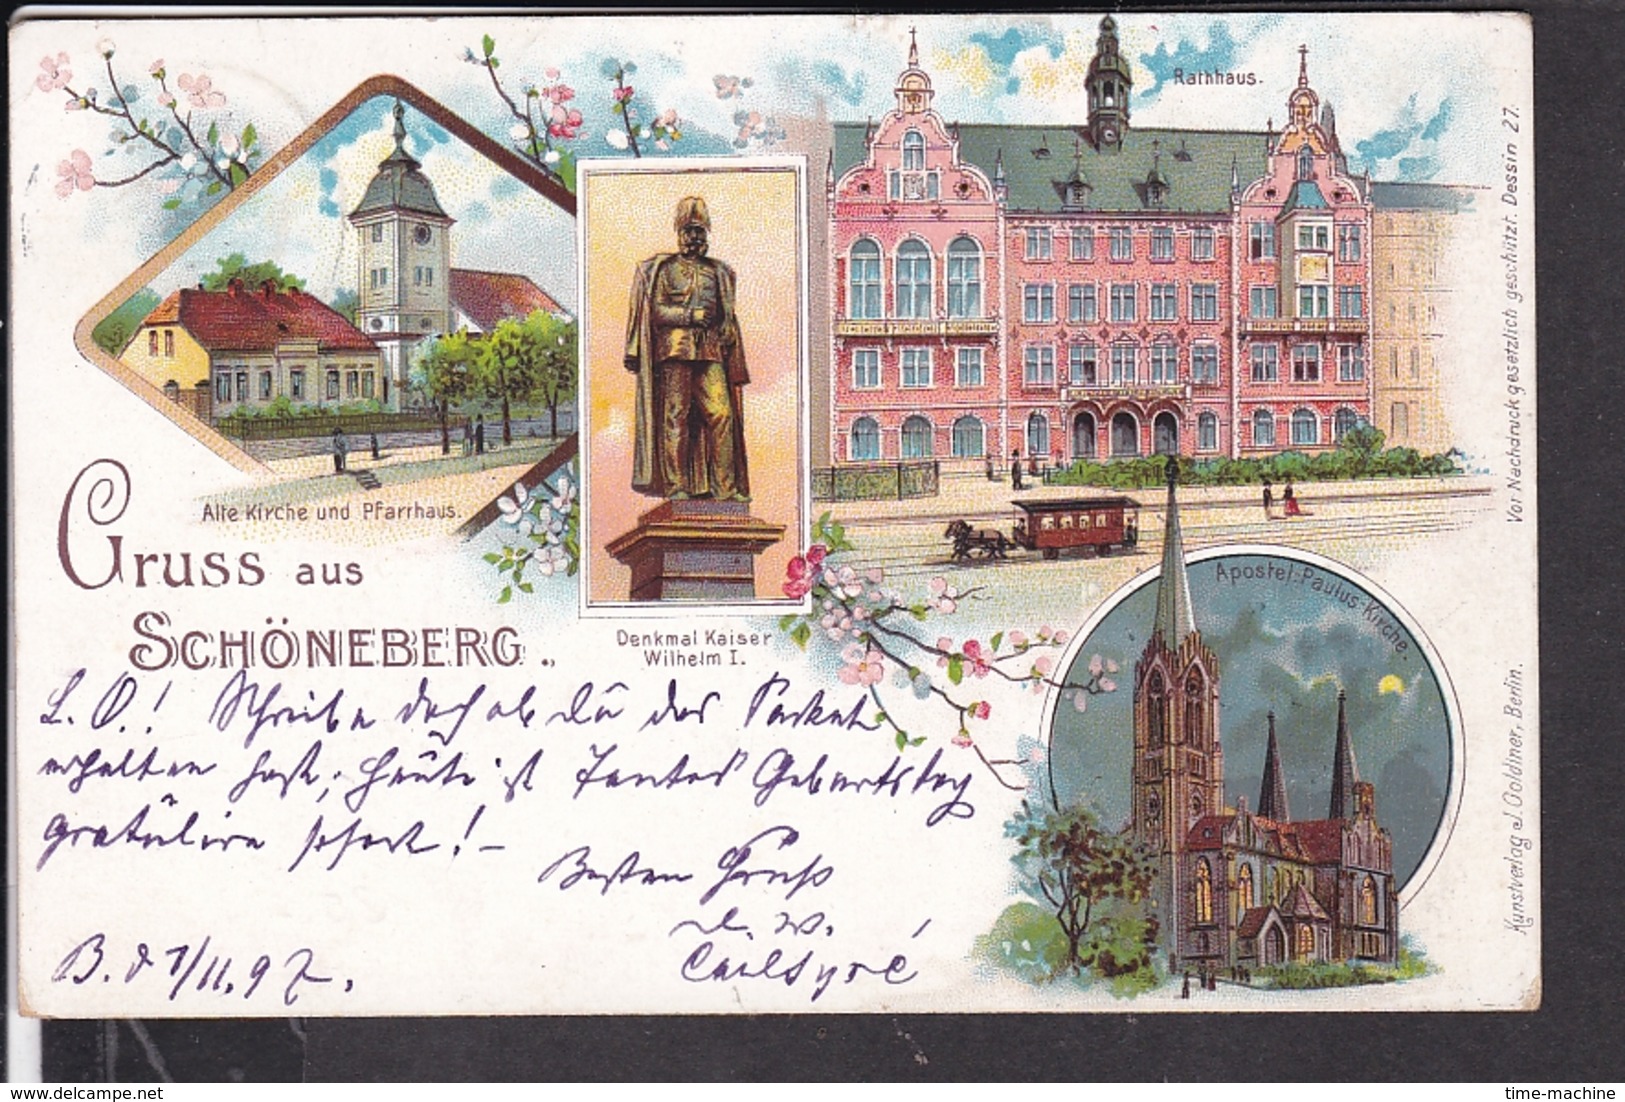 Rathhaus.
Alte Kirche und Pfarrhaus.
Gruss aus
SCHÖNEBERG.
Denkmal Kaiser
Wilhelm I.
Apostel-Paulus-Kirche.
Vor Nachdruck gesetzlich geschützt. Dessin 27.
Kunstverlag J. Goldiner, Berlin.
L. O.! Schreibe doch ob Du das Packet
erhalten hast, heute ist Tantes Geburtstag
gratulire sofort! –
Besten Gruß
B. d 7/11.97.
time-machine